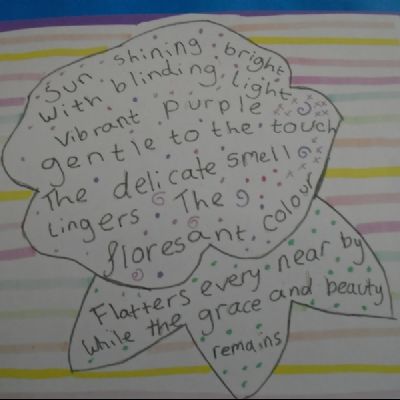 Sun shining bright
With blinding light
vibrant purple
gentle to the touch
The delicate smell
lingers The
floresant colour
Flatters every near by
while the grace and beauty
remains